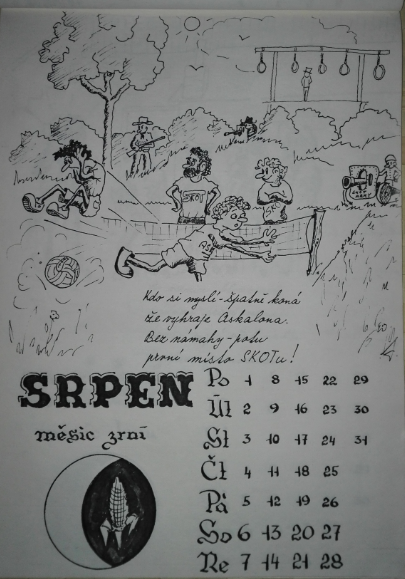 SKOT
Kdo si myslí - špatně koná
že vyhraje Askalona.
Bez námahy - potu
první místo SKOTu!
SRPEN
měsíc zrní
Po 1 8 15 22 29
Út 2 9 16 23 30
St 3 10 17 24 31
Čt 4 11 18 25
Pá 5 12 19 26
So 6 13 20 27
Ne 7 14 21 28